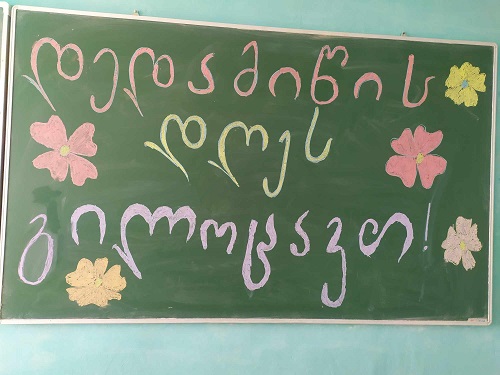 დედამიწის
დღეს
გილოცავთ!